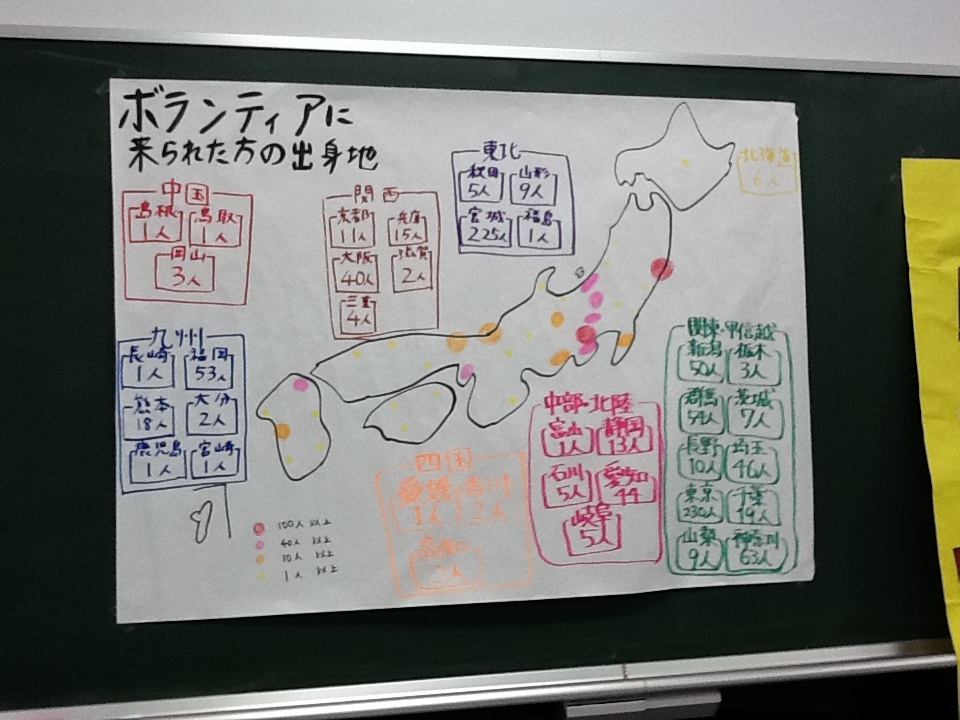 ボランティアに
来られた方の出身地
中国
島根 鳥取
1人 1人
岡山
3人
関西
京都 兵庫
11人 15人
大阪 滋賀
40人 2人
三重
4人
東北
秋田 山形
5人 9人
宮城 福島
225人 1人
北海道
6人
九州
長崎 福岡
1人 53人
熊本 大分
18人 2人
鹿児島 宮崎
1人 1人
100人 以上
40人 以上
10人 以上
1人 以上
四国
愛媛 香川
1人 2人
2人
中部・北陸
富山 静岡
1人 13人
石川 愛知
5人 44
岐阜
5人
関東・甲信越
新潟 栃木
50人 3人
群馬 茨城
54人 7人
長野 埼玉
10人 46人
東京 千葉
230人 19人
山梨 神奈川
9人 63人